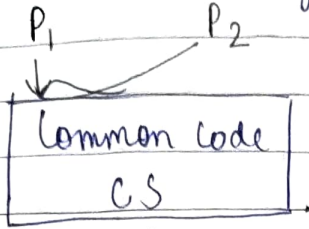 P1 P2
Common code
CS